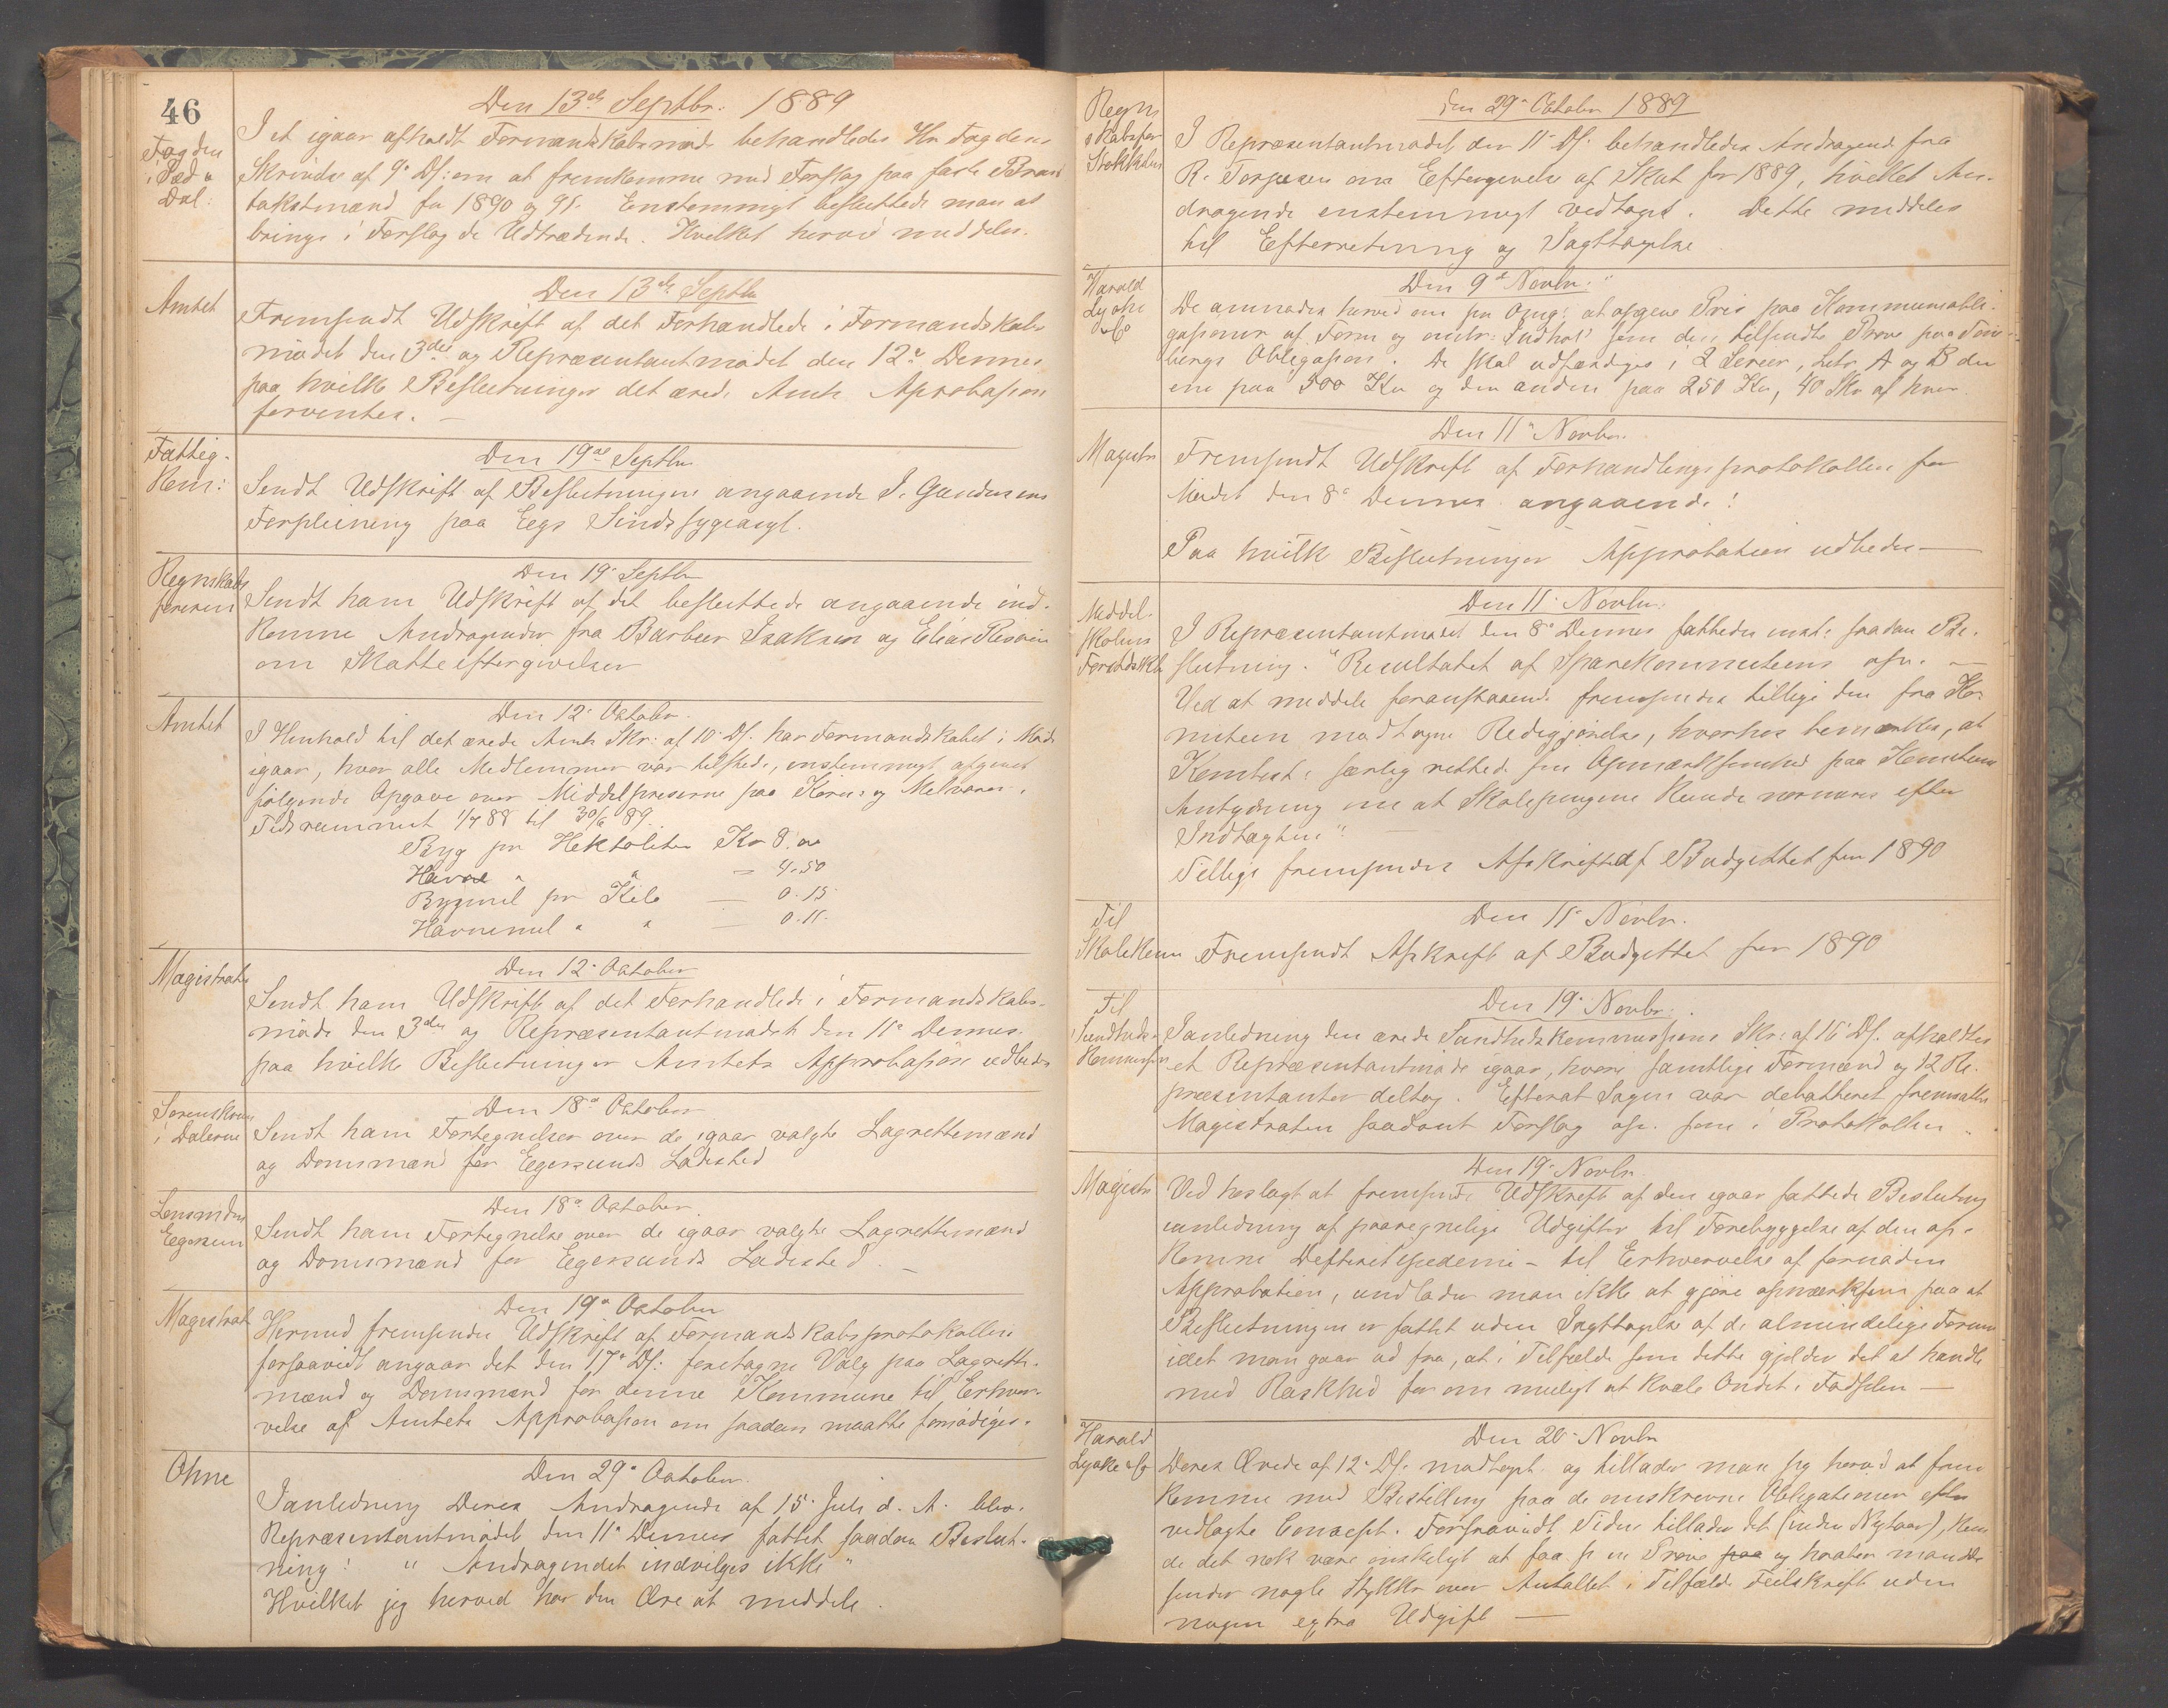 46
Den 13de Septbr. 1889
Fogden
i Jæd. &
Dal.
I et igaar afholdt Formandskabsmøde behandledes Hr Fogdens
Skrivelse af 9de Ds: om at fremkomme med Forslag paa faste Brand
takstmænd for 1890 og 91. Enstemmigt besluttede man at
bringe i Forslag de Udtrædende. Hvilket herved meddeles.
Den 13de Septbr
Amtet
Fremsendt Udskrift af det Forhandlede i Formandskabs
mødet den 3die og Repræsentantmødet den 12te Dennes
paa hvilke Beslutninger det ærede Amts Aprobasion
forventes. —
Den 19de Septbr
Fattig-
Kom:
Sendt Udskrift af Beslutningen angaaende J. Gundersens
Forpleining paa Eegs Sindssygeasyl.
Den 19de Septbr
Regnskabs
føreren
Sendt ham Udskrift af det besluttede angaaende ind-
komne Andragender fra Barber Isaksen og Elias
om Skatteeftergivelser
Den 12te Oktober.
Amtet
I Henhold til det ærede Amts Skr: af 10de Ds. har Formandskabet i Møde
igaar, hvor alle Medlemmer var tilstede, enstemmigt afgivet
følgende Opgave over Middelpriserne paa Korn og Melvarer i
Tidsrummet 1/7 88 til 30/6 89.
Byg pr Hektoliter Kr 8.00
Havre " " = 4.50
Bygmel pr Kilo — 0.15
Havremel " " — 0.11
Den 12te Oktober
Magistraten
Sendt ham Udskrift af det Forhandlede i Formandskabs-
møde den 3die og Repræsentantmødet den 11te Dennes.
paa hvilke Beslutninger Amtets Approbasion udbedes
Den 18de Oktober
Sorenskriv
i Dalerne
Sendt ham Fortegnelser over de igaar valgte Lagrettemænd
og Domsmænd for Egersunds Ladested
Den 18de Oktober.
Lensmden
Egersun
Sendt ham Fortegnelse over de igaar valgte Lagrettemænd
og Domsmænd for Egersunds Ladested. —
Den 19de Oktober
Magistrat
Hermed fremsendes Udskrift af Formandskabsprotokollen
forsaavidt angaar det den 17de Ds: foretagne Valg paa Lagrette-
mænd og Domsmænd for denne Kommune til Erhver-
velse af Amtets Approbasion om saadan maatte fornødiges.
Den 29de Oktober.
Ohne
Ianledning Deres Andragende af 15. Juli d. A. blev i
Repræsentantmødet den 11te Dennes fattet saadan Beslut-
ning: "Andragendet indvilges ikke"
Hvilket jeg herved har den Ære at meddele.
Den 29de Oktober 1889
Regn
skabsfør
Stokkeland
I Repræsentantmødet den 11te Ds. behandledes Andragende fra
R. Torjusen om Eftergivelse af Skat for 1889, hvilket An-
dragende enstemmigt vedtoges. Dette meddeles
til Efterretning og Iagttagelse
Den 9de Novbr.
Harald
Lycke
& Co
De anmodes herved om pr Omg: at opgive Pris paa Kommuneobli-
gasjoner af Form og omtr: Indhold som den tilsendte Prøve paa Tøns-
bergs Obligasjon. De skal udfærdiges i 2 Serier, Litr A og B den
ene paa 500 Kr og den anden paa 250 Kr, 40 Stk af hver
Den 11te Novbr.
Magistr
Fremsendt Udskrift af Forhandlingsprotokollen for
Mødet den 8de Dennes angaaende!
Paa hvilke Beslutninger Approbation udbedes —
Den 11te Novbr.
Middel-
skolens
Forstdskb
I Repræsentantmødet den 8de Dennes fattedes enst: saadan Be-
slutning. "Resultatet af Sparekommiteens osv. —
Ved at meddele foranstaaende fremsendes tillige den fra Ko-
miteen modtagne Redegjørelse, hvorhos bemærkes, at
Kombest: særlig rettede sin Opmærksomhed paa Komiteens
Antydning om at Skolepengene kunde normeres efter
Indtægten". —
Tillige fremsendes Afskrift af Budgettet for 1890
Den 11te Novbr.
Til
Skolekom
Fremsendt Afskrift af Budgettet for 1890
Den 19de Novbr.
Til
Sundheds-
Kommission
Ianledning den ærede Sundhedskommissions Skr: af 16de Ds. afholdtes
et Repræsentantmøde igaar, hvori samtlige Formænd og 12 Re-
præsentanter deltog. Efterat Sagen var debatteret fremsatte
Magistraten saadant Forslag osv. som i Protokollen
Den 19de Novbr.
Magistr
Ved hoslagt at fremsende Udskrift af den igaar fattede Beslutning
ianledning af paaregnelige Udgifter til Forebyggelse af den op-
komne Difteritepedemi - til Erhvervelse af fornøden
Approbation, undlader man ikke at gjøre opmærksom paa at
Beslutningen er fattet uden Iagttagelse af de almindelige Former
idet man gaar ud fra, at i Tilfælde som dette gjelder det at handle
med Raskhed for om muligt at kvæle Ondet i Fødselen —
Den 20de Novbr
Harald
Lycke & Co
Deres Ærede af 12te Ds. modtaget. og tillader man sig herved at frem
komme med Bestilling paa de omskrevne Obligationer efter
vedlagte Concept. Forsaavidt Tiden tillader det (inden Nytaar), kun
de det nok være ønskeligt at faa se en Prøve paa og haaber man De
sender nogle Stykker over Antallet i Tilfælde Feilskrift uden
nogen extra Udgift —